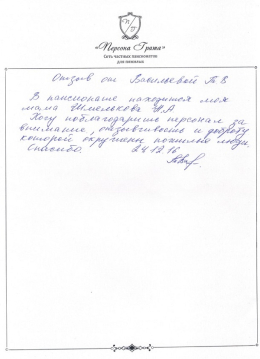 «Персона Грата»
Сеть частных пансионатов
для пожилых
Отзыв от Васильевой Т В
В пансионате находится моя
мама Шмелькова Н.А
Хочу поблагодарить персонал за
внимание, отзывчивость и доброту
которой окружены пожилые люди.
Спасибо. 24.12.16